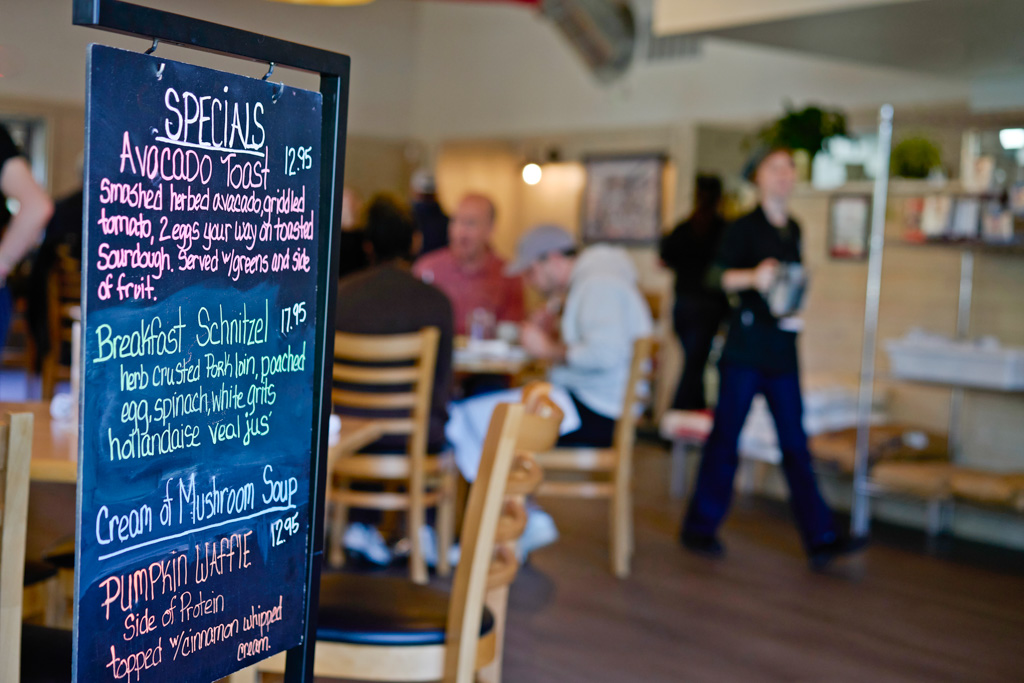 SPECIALS
Avocado Toast 12.95
smashed herbed avacado, griddled
tomato, 2 eggs your way on toasted
Sourdough. Served w/greens and side
of fruit.
Breakfast Schnitzel 17.95
herb crusted Pork loin, poached
egg, spinach, white grits
hollandaise veal jus'
Cream of Mushroom Soup
12.95
PUMPKIN WAFFLE
Side of Protein
topped w/cinnamon whipped
cream.